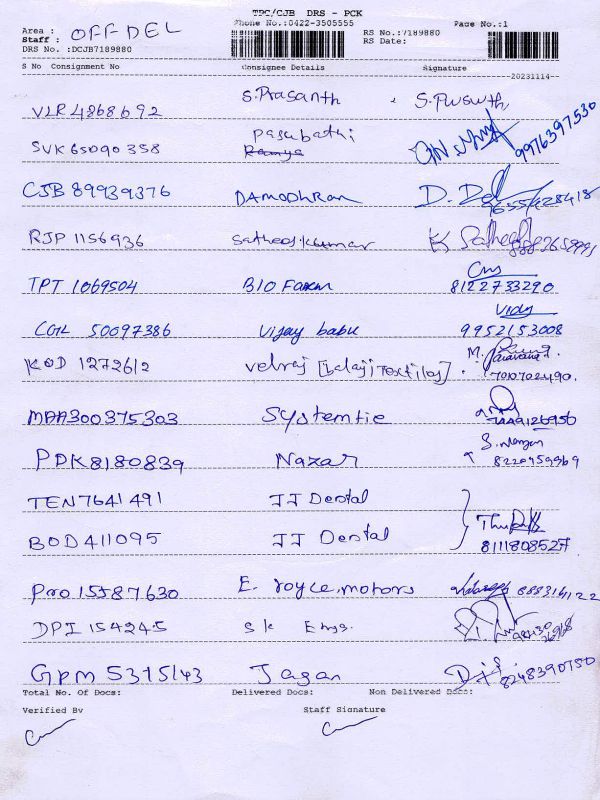 TPC/CJB DRS - PCK
Area : OFF DEL Phone No.:0422-3505555 RS No.:7189880 Page No.:1
Staff : RS Date:
DRS No. :DCJB7189880
S No Consignment No Consignee Details Signature
20231114
VLR 4868692 S.Prasanth S.
SVK 65090358 Pasubathi Ramya 9976397530
CJB 89939376 DAMODHRAN D.
RJP 1156936 Satheeshkumar K
TPT 1069504 BIO Farm 8122733290
CGL 50097386 Vijay babu Vidy 9952153008
KOD 1272612 velraj [balaji Textiles] M. 7010702490.
MAA300375303 Systemtie
PDK8180839 Nazar S. 8220959969
TEN7641491 JJ Dental
BOD411095 JJ Dental 8111808527
PNO15587630 E. royce motors 888314122
DPI 154245 S K Engs.
GPM 5315143 Jagan 8248390750
Total No. Of Docs: Delivered Docs: Non Delivered Docs:
Verified By Staff Signature